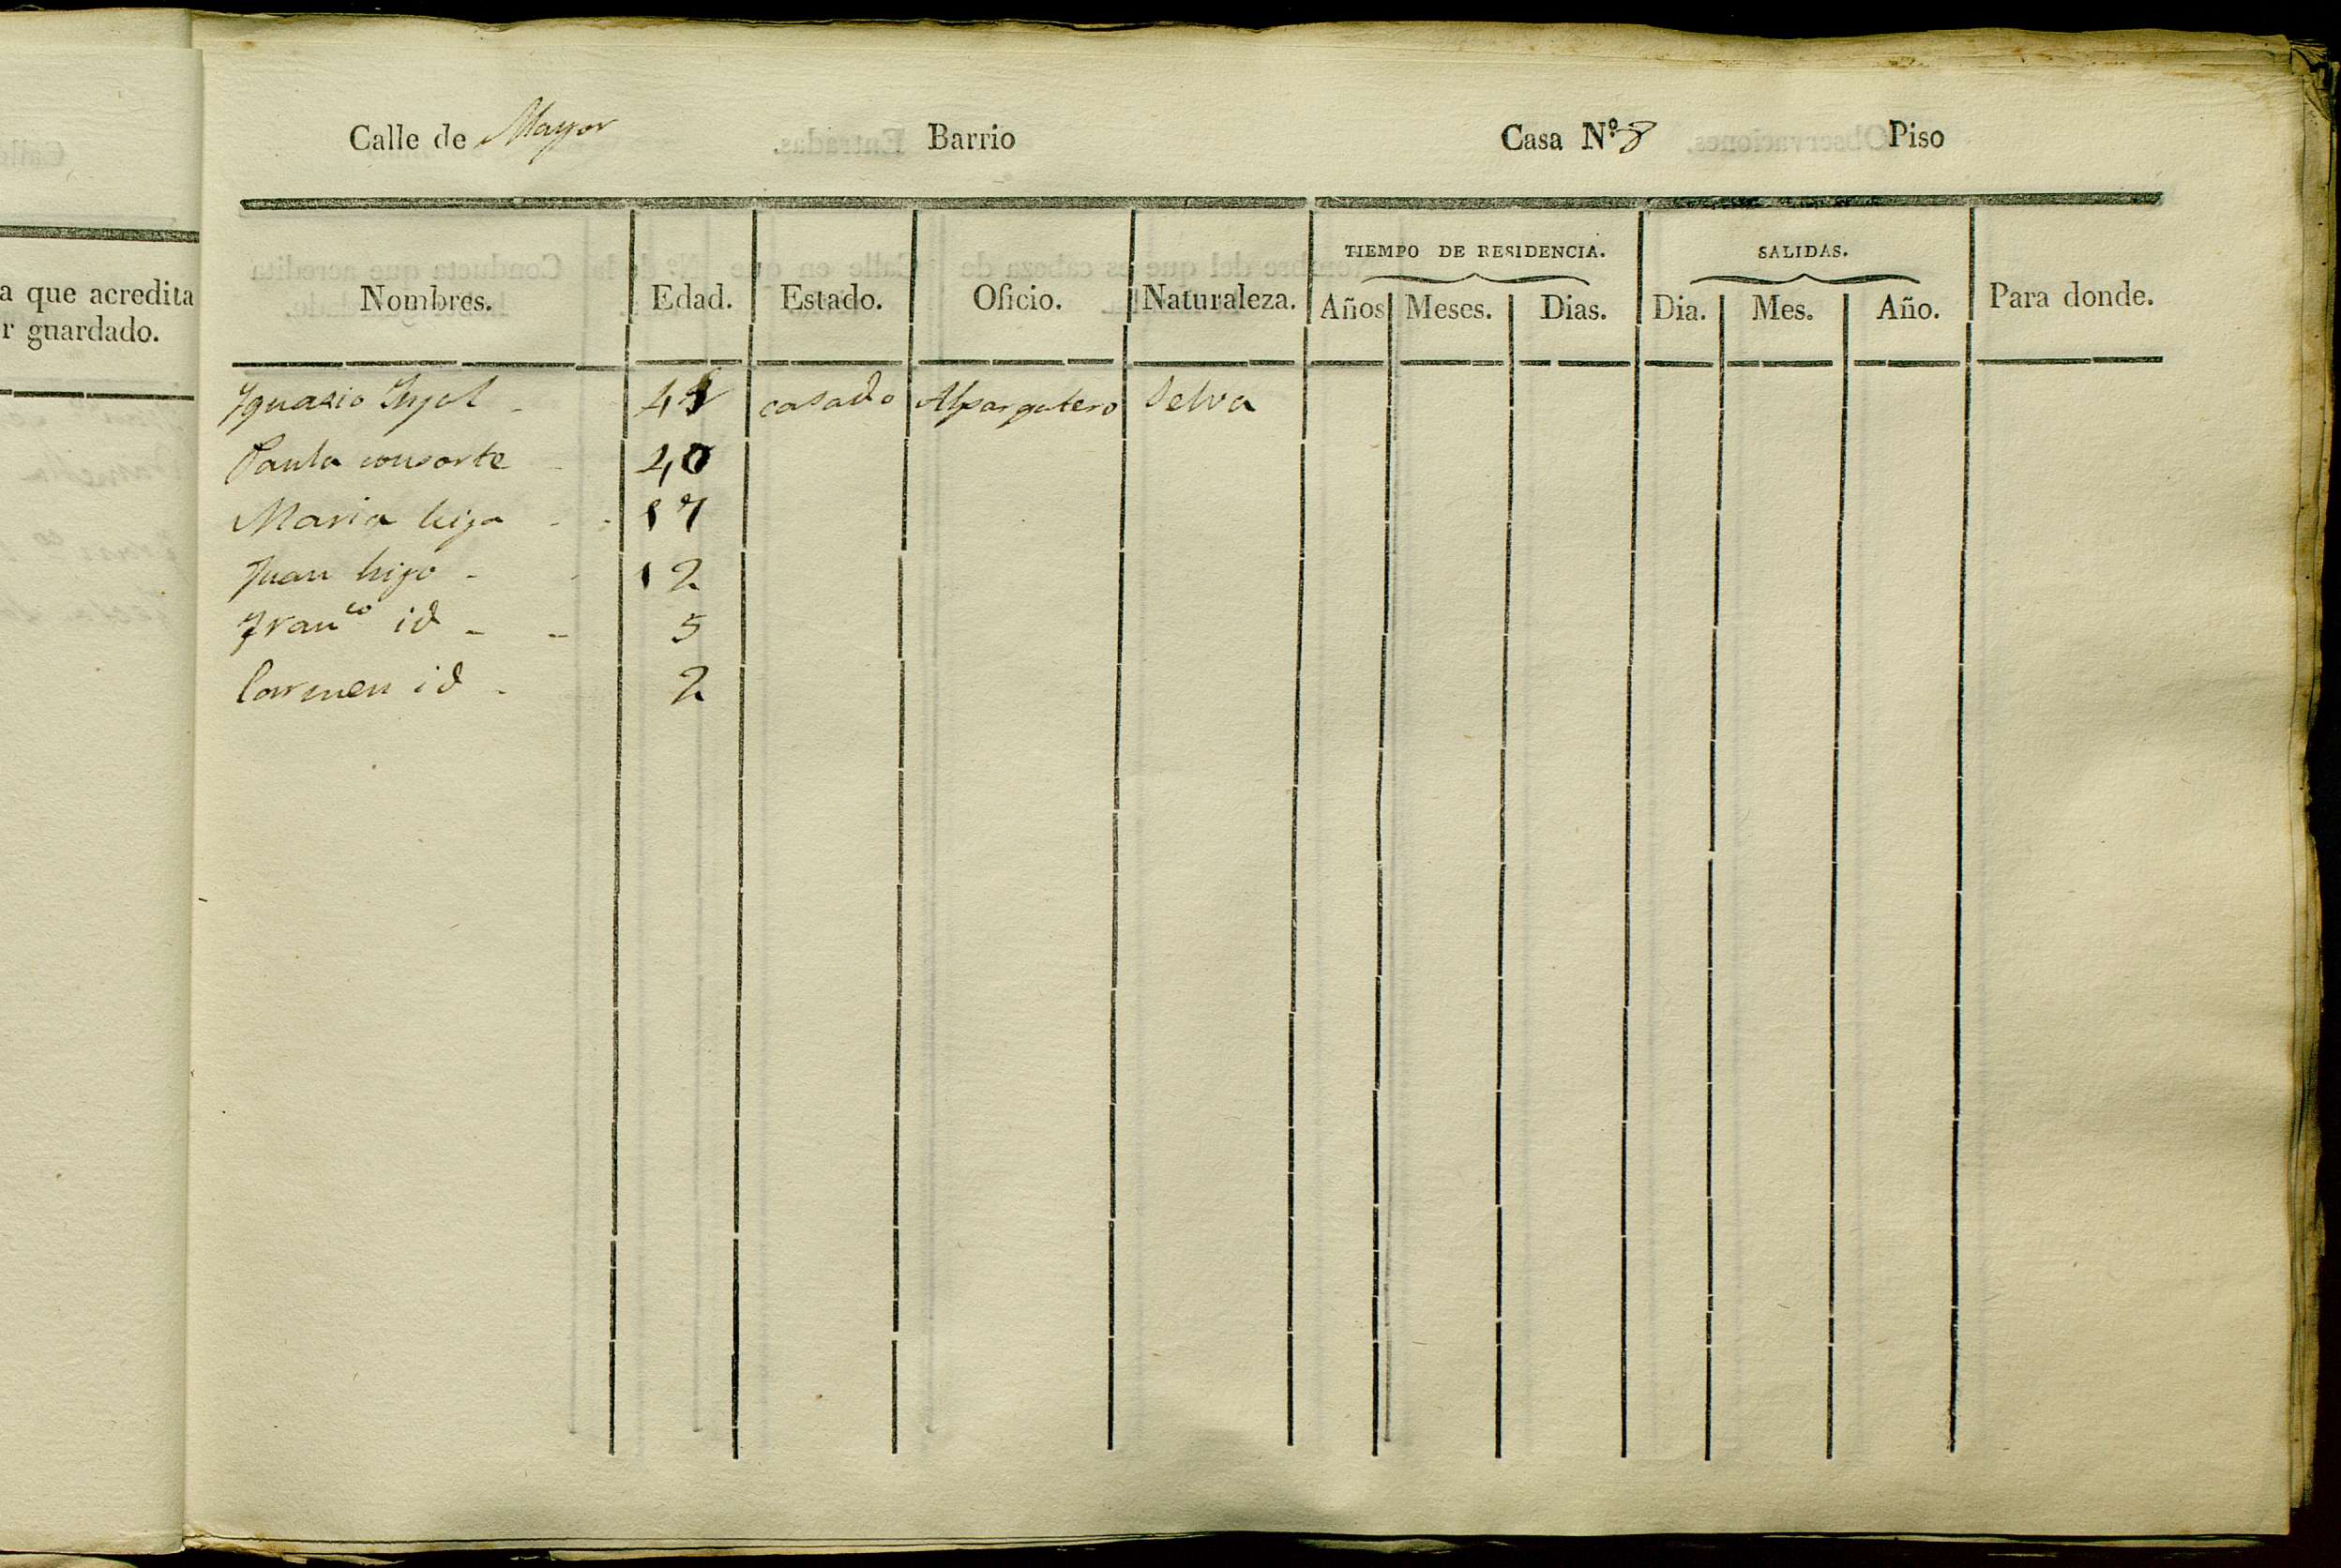 a que acredita
r guardado.
Calle de Mayor Barrio Casa N.º 8 Piso
TIEMPO DE RESIDENCIA. SALIDAS.
Nombres. Edad. Estado. Oficio. Naturaleza. Años Meses. Dias. Dia. Mes. Año. Para donde.
Ygnasio casado Alpargatero Selva
Paula consorte - 40
Maria hija - - 17
Juan hijo - - 12
Franco id - - 5
Carmen id - 2